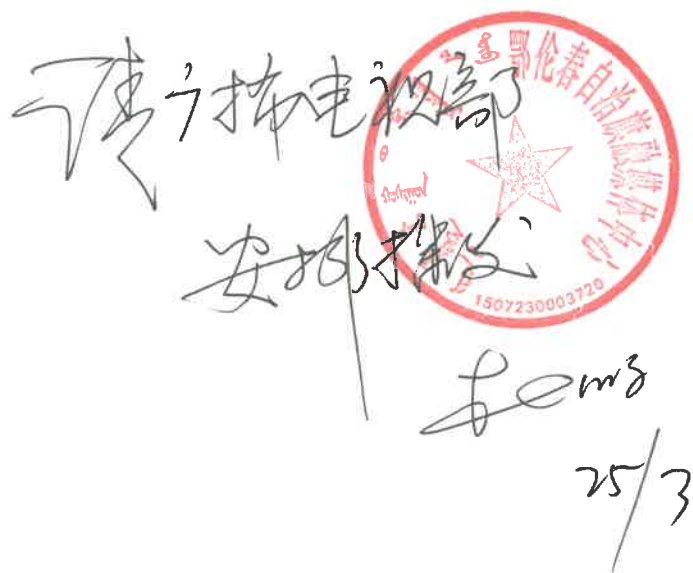 请广播电视部
安排播发
25/3
鄂伦春自治旗融媒体中心
1507230003720